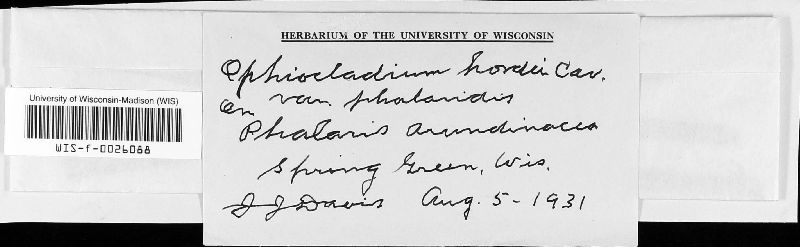 HERBARIUM OF THE UNIVERSITY OF WISCONSIN
Ophiocladium hordei Cav.
var. phalaridis
on
Phalaris arundinacea
Spring Green, Wis.
J J Davis Aug. 5 - 1931
University of Wisconsin-Madison (WIS)
WIS-f-0026088